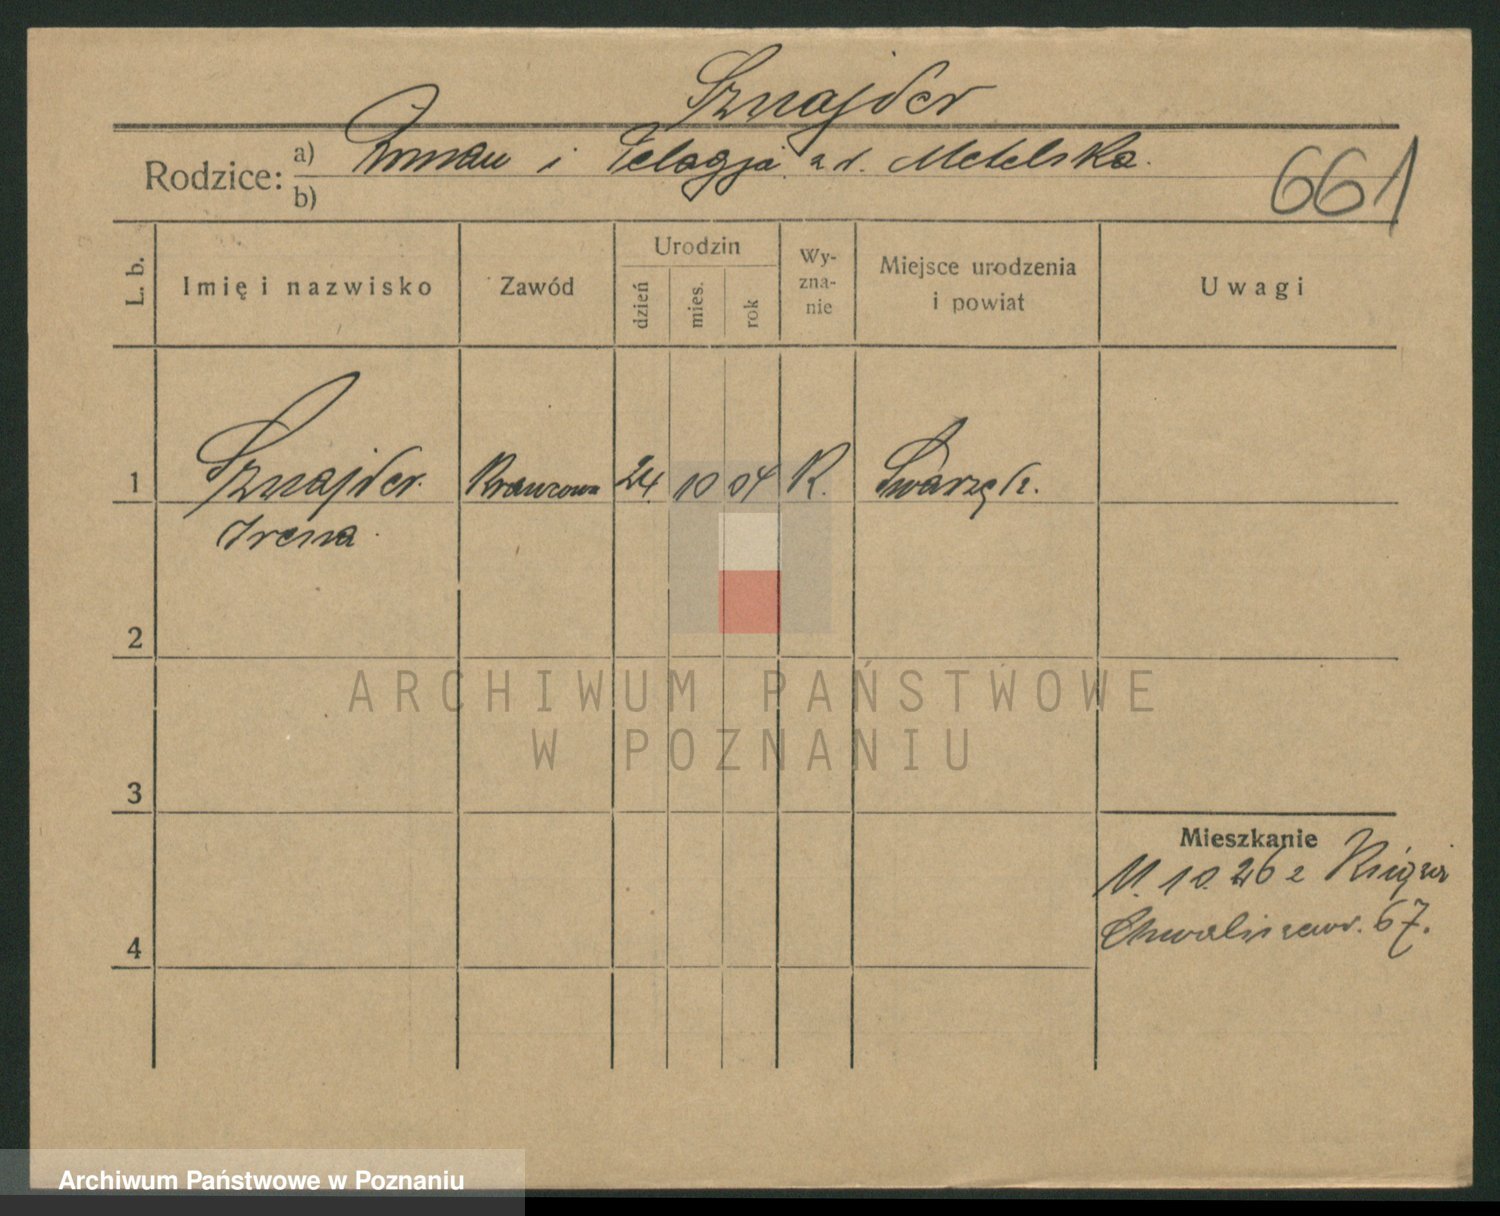 Sznajder
Rodzice: a) i Pelagja z d. Metelska.
b)
661
L. b.
Imię i nazwisko
Zawód
Urodzin
dzień
mies.
rok
Wy-
zna-
nie
Miejsce urodzenia
i powiat
Uwagi
1 Sznajder Krawcowa 24 10 04 R. Swarzędz.
Irena
2
ARCHIWUM PAŃSTWOWE
W POZNANIU
3
Mieszkanie
11.10.26 z
Chwaliszewo. 67.
4
Archiwum Państwowe w Poznaniu